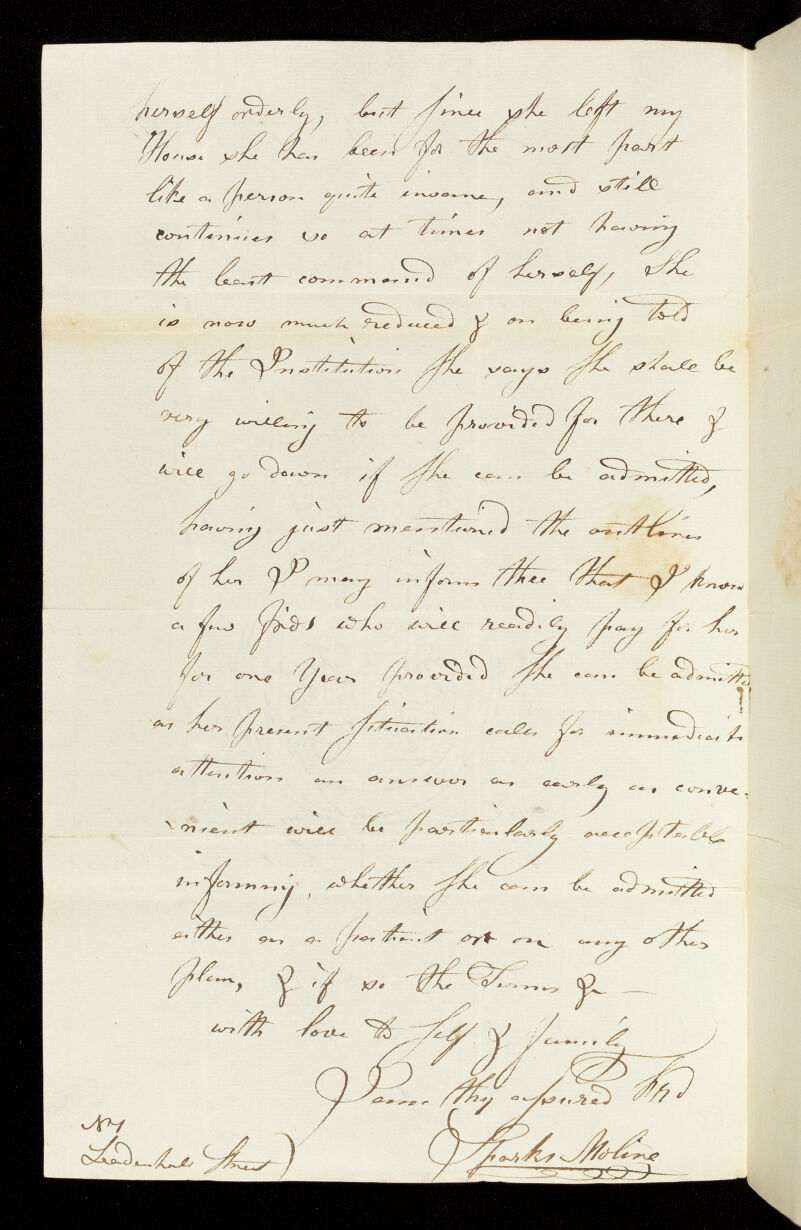 herself orderly, but since she left my
House she has been for the most part
like a person quite insane, and still
continues so at times not having
the least command of herself, She
is now much reduced & on being told
of the Institution She says She shall be
very willing to be provided for there &
will go down if She can be admitted,
having just mentioned the outlines
of her I may inform thee that I know
a few frds who will readily pay for her
for one Year provided She can be admitted
as her present Situation calls for immediate
attention an answer as early as conve-
nient will be particularly acceptable
informing, whether She can be admitted
either as a patient or on any other
plan, & if so the Terms &c —
with love to Self & family
I am thy assured Frd
Sparks Moline
No 1
Leadenhall Street